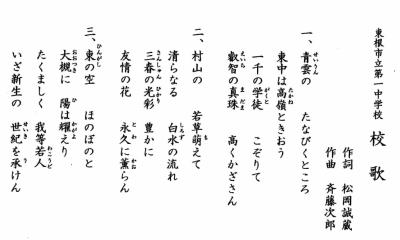 東根市立第一中学校 校歌
作詞 松岡誠蔵
作曲 斉藤次郎
一、青雲の たなびくところ
東中は高嶺ときおう
一千の学徒 こぞりて
叡智の真珠 高くかざさん
二、村山の 若草萌えて
清らなる 白水の流れ
三春の光彩 豊かに
友情の花 永久に薫らん
三、東の空 ほのぼのと
大槻に 陽は耀えり
たくましく 我等若人
いざ新生の 世紀を承けん